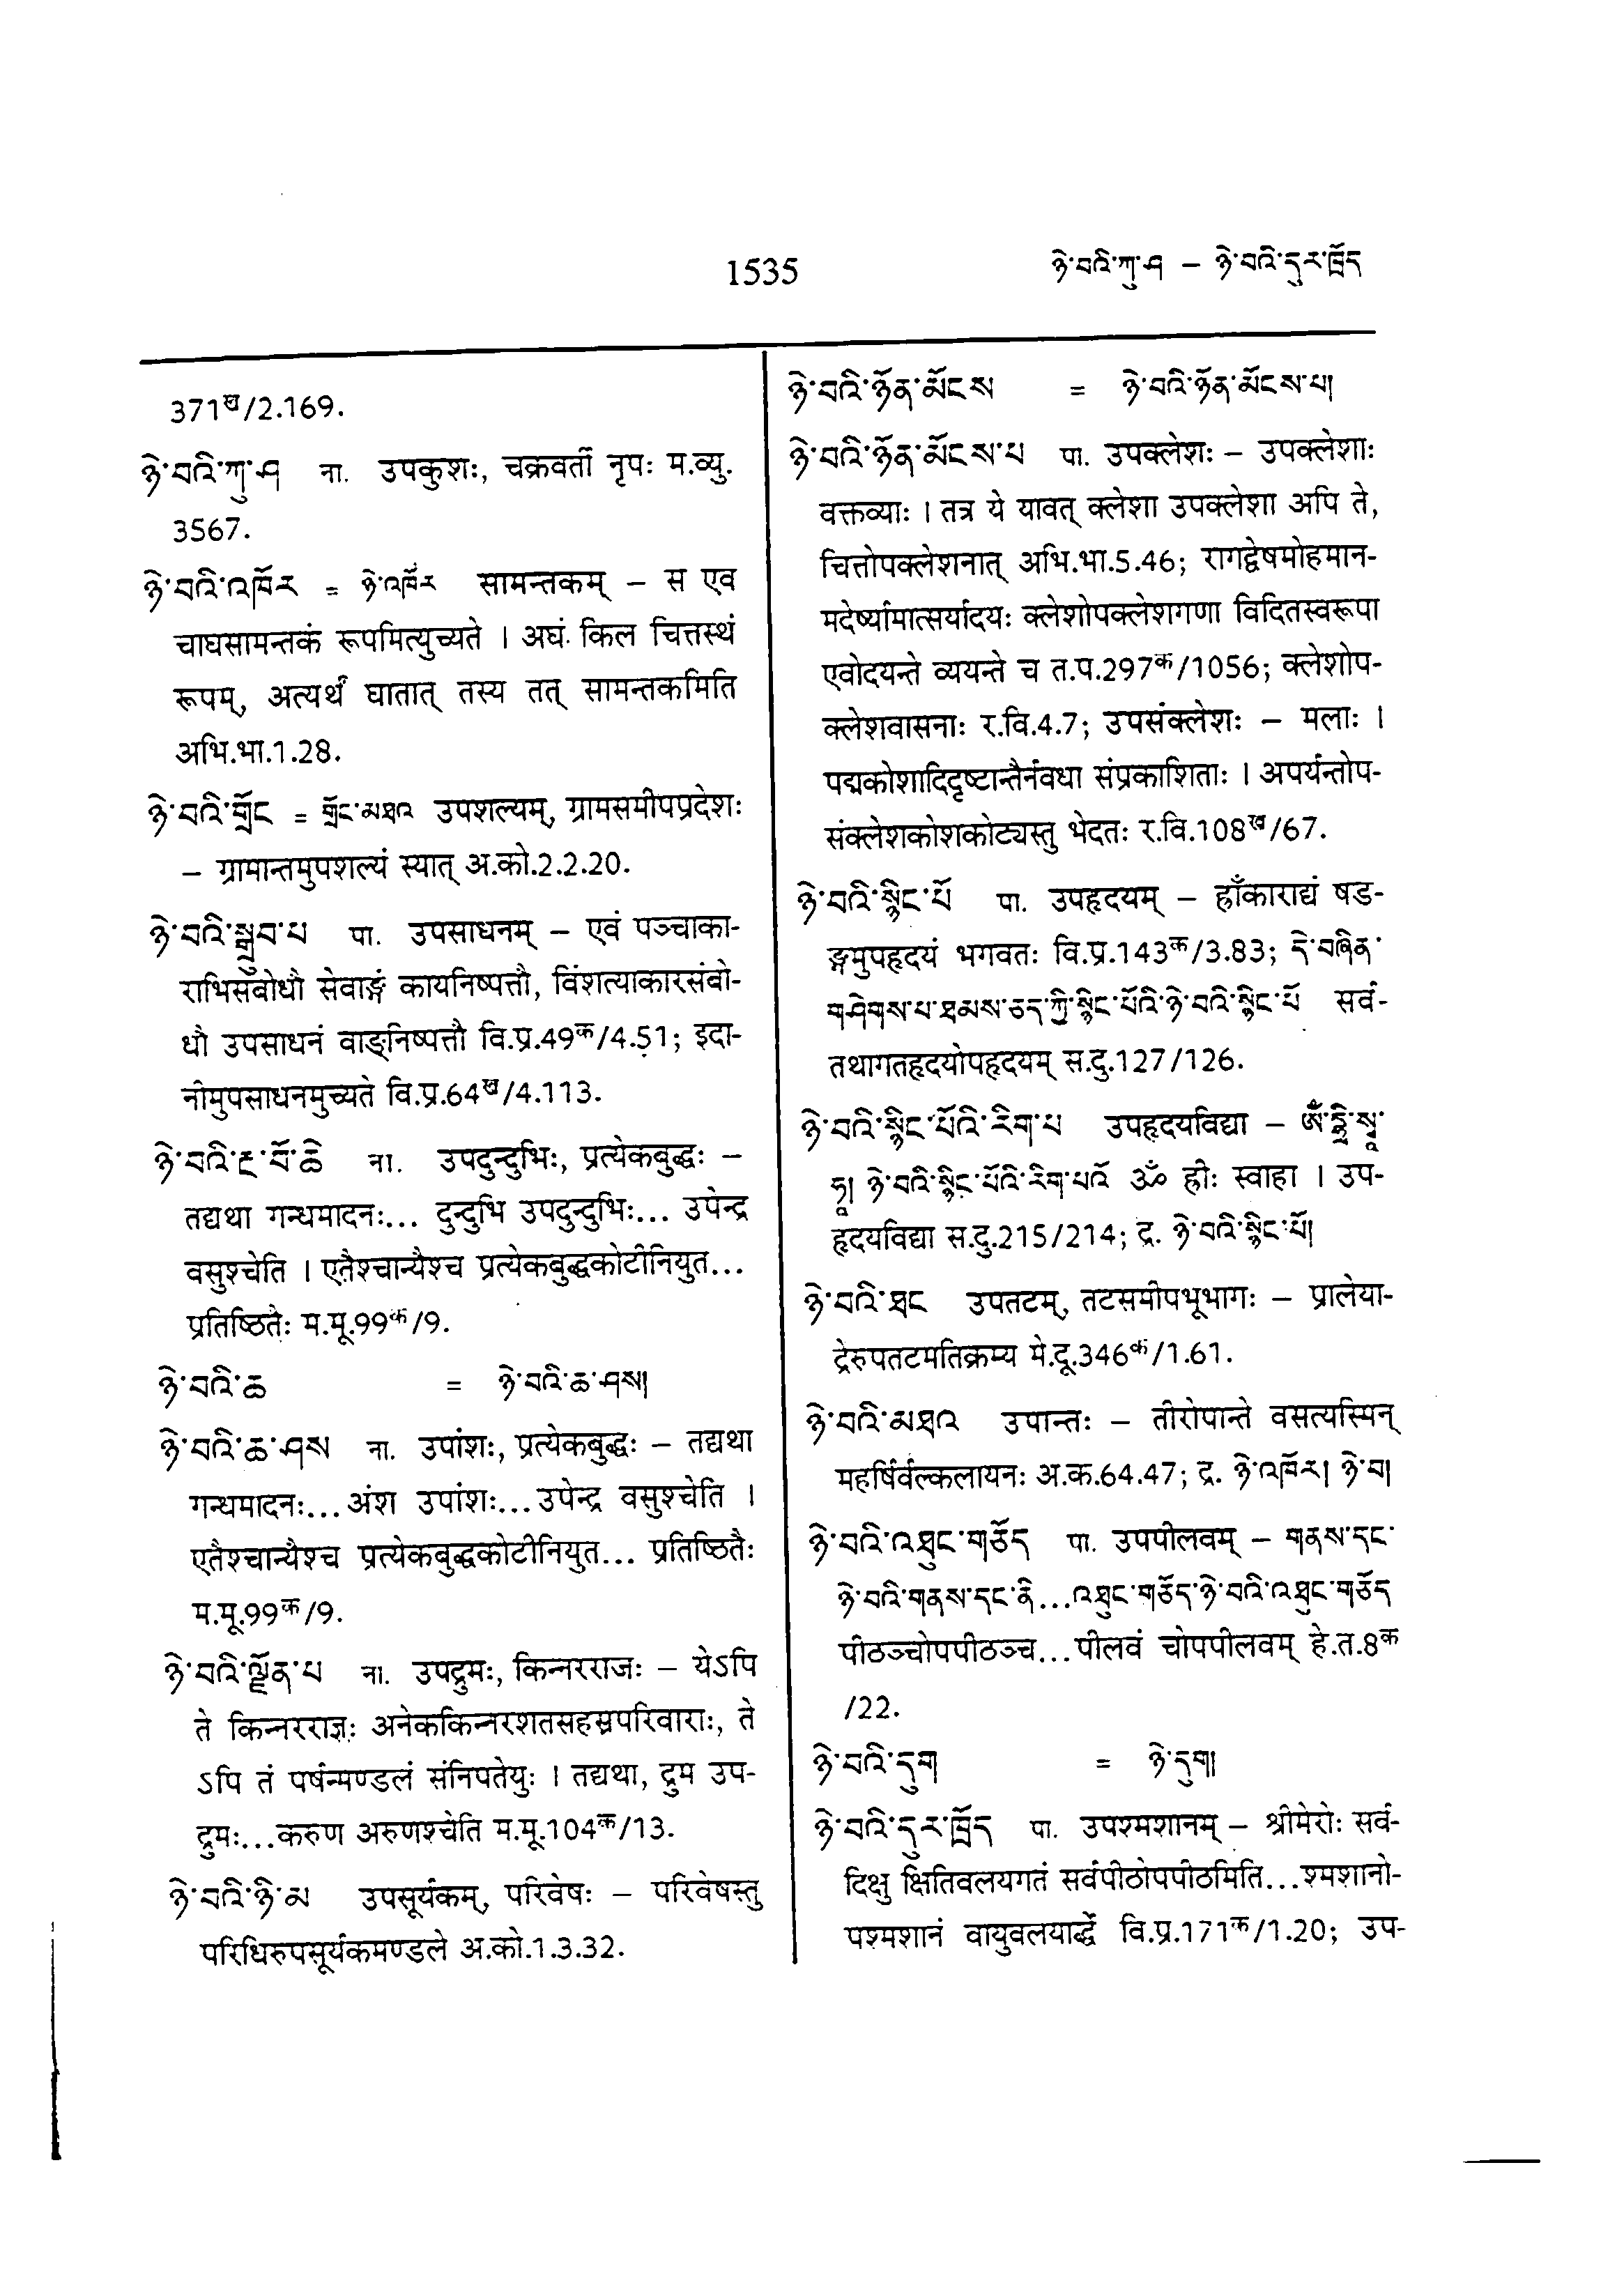 1535
ཉེ་བའི་ཀུ་ཤ – ཉེ་བའི་དུར་ཁྲོད
371ख/2.169.
ཉེ་བའི་ཀུ་ཤ ना. उपकुशः, चक्रवर्ती नृपः म.व्यु.
3567.
ཉེ་བའི་འཁོར = ཉེ་འཁོར सामन्तकम् – स एव
चाघसामन्तकं रूपमित्युच्यते । अघं किल चित्तस्थं
रूपम्, अत्यर्थं घातात् तस्य तत् सामन्तकमिति
अभि.भा.1.28.
ཉེ་བའི་གྲོང = གྲོང་མཐའ उपशल्यम्, ग्रामसमीपप्रदेशः
– ग्रामान्तमुपशल्यं स्यात् अ.को.2.2.20.
ཉེ་བའི་སྒྲུབ་པ पा. उपसाधनम् – एवं पञ्चाका-
राभिसंबोधौ सेवाङ्गं कायनिष्पत्तौ, विंशत्याकारसंबो-
धौ उपसाधनं वाङ्निष्पत्तौ वि.प्र.49क/4.51; इदा-
नीमुपसाधनमुच्यते वि.प्र.64ख/4.113.
ཉེ་བའི་རྔ་བོ་ཆེ ना. उपदुन्दुभिः, प्रत्येकबुद्धः –
तद्यथा गन्धमादनः... दुन्दुभि उपदुन्दुभिः... उपेन्द्र
वसुश्चेति । एतैश्चान्यैश्च प्रत्येकबुद्धकोटीनियुत...
प्रतिष्ठितैः म.मू.99क/9.
ཉེ་བའི་ཆ = ཉེ་བའི་ཆ་ཤས།
ཉེ་བའི་ཆ་ཤས ना. उपांशः, प्रत्येकबुद्धः – तद्यथा
गन्धमादनः...अंश उपांशः...उपेन्द्र वसुश्चेति ।
एतैश्चान्यैश्च प्रत्येकबुद्धकोटीनियुत... प्रतिष्ठितैः
म.मू.99क/9.
ཉེ་བའི་ལྗོན་པ ना. उपद्रुमः, किन्नरराजः – येऽपि
ते किन्नरराज्ञः अनेककिन्नरशतसहस्रपरिवाराः, ते
ऽपि तं पर्षन्मण्डलं संनिपतेयुः । तद्यथा, द्रुम उप-
द्रुमः...करुण अरुणश्चेति म.मू.104क/13.
ཉེ་བའི་ཉི་མ उपसूर्यकम्, परिवेषः – परिवेषस्तु
परिधिरुपसूर्यकमण्डले अ.को.1.3.32.
ཉེ་བའི་ཉོན་མོངས = ཉེ་བའི་ཉོན་མོངས་པ།
ཉེ་བའི་ཉོན་མོངས་པ पा. उपक्लेशः – उपक्लेशाः
वक्तव्याः । तत्र ये यावत् क्लेशा उपक्लेशा अपि ते,
चित्तोपक्लेशनात् अभि.भा.5.46; रागद्वेषमोहमान-
मदेर्ष्यामात्सर्यादयः क्लेशोपक्लेशगणा विदितस्वरूपा
एवोदयन्ते व्ययन्ते च त.प.297क/1056; क्लेशोप-
क्लेशवासनाः र.वि.4.7; उपसंक्लेशः – मलाः ।
पद्मकोशादिदृष्टान्तैर्नवधा संप्रकाशिताः । अपर्यन्तोप-
संक्लेशकोशकोट्यस्तु भेदतः र.वि.108ख/67.
ཉེ་བའི་སྙིང་པོ पा. उपहृदयम् – ह्राँकाराद्यं षड-
ङ्गमुपहृदयं भगवतः वि.प्र.143क/3.83; དེ་བཞིན་
གཤེགས་པ་ཐམས་ཅད་ཀྱི་སྙིང་པོའི་ཉེ་བའི་སྙིང་པོ सर्व-
तथागतहृदयोपहृदयम् स.दु.127/126.
ཉེ་བའི་སྙིང་པོའི་རིག་པ उपहृदयविद्या – ༀ་ཧྲཱི་སྭཱ་
ཧཱ། ཉེ་བའི་སྙིང་པོའི་རིག་པའོ ॐ ह्रीः स्वाहा । उप-
हृदयविद्या स.दु.215/214; द्र. ཉེ་བའི་སྙིང་པོ།
ཉེ་བའི་ཐང उपतटम्, तटसमीपभूभागः – प्रालेया-
द्रेरुपतटमतिक्रम्य मे.दू.346क/1.61.
ཉེ་བའི་མཐའ उपान्तः – तीरोपान्ते वसत्यस्मिन्
महर्षिर्वल्कलायनः अ.क.64.47; द्र. ཉེ་འཁོར། ཉེ་བ།
ཉེ་བའི་འཐུང་གཅོད पा. उपपीलवम् – གནས་དང་
ཉེ་བའི་གནས་དང་ནི...འཐུང་གཅོད་ཉེ་བའི་འཐུང་གཅོད
पीठञ्चोपपीठञ्च...पीलवं चोपपीलवम् हे.त.8क
/22.
ཉེ་བའི་དུག = ཉེ་དུག།
ཉེ་བའི་དུར་ཁྲོད पा. उपश्मशानम् – श्रीमेरोः सर्व-
दिक्षु क्षितिवलयगतं सर्वपीठोपपीठमिति...श्मशानो-
पश्मशानं वायुवलयार्द्धे वि.प्र.171क/1.20; उप-